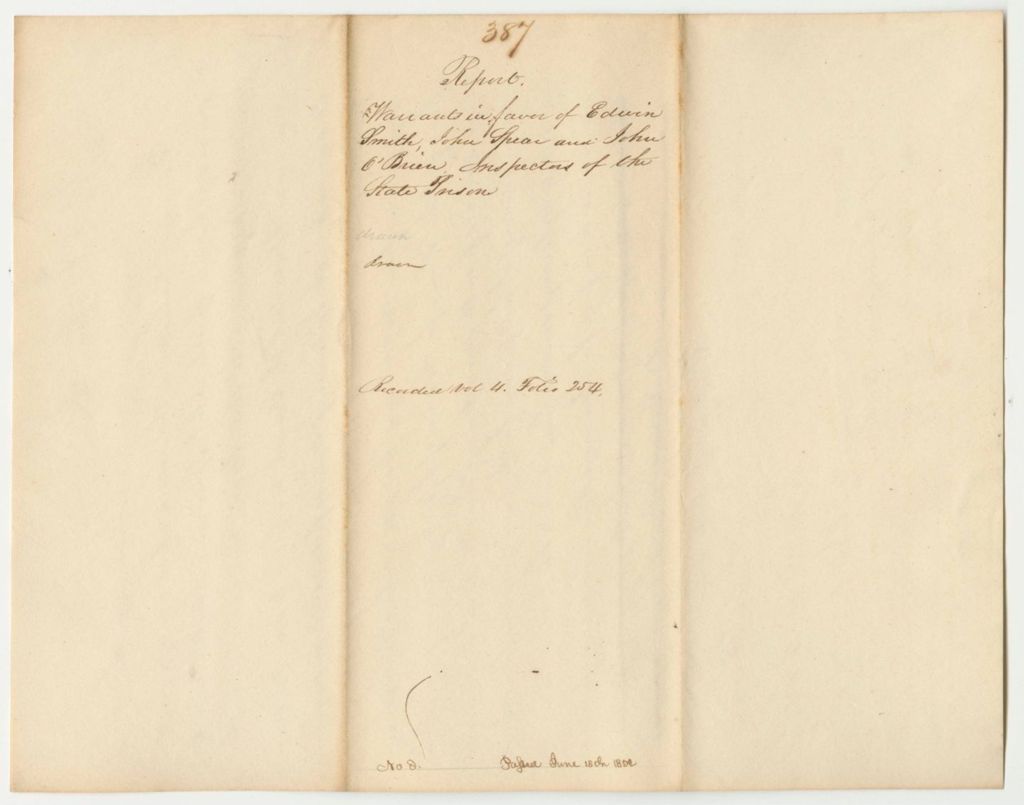 387
Report.
Warrants in favor of Edwin
Smith, John Spear and John
O'Brien, Inspectors of the
State Prison
drawn
drawn
Recorded Vol 4. Folio 254.
No 8.
Passed June 18th